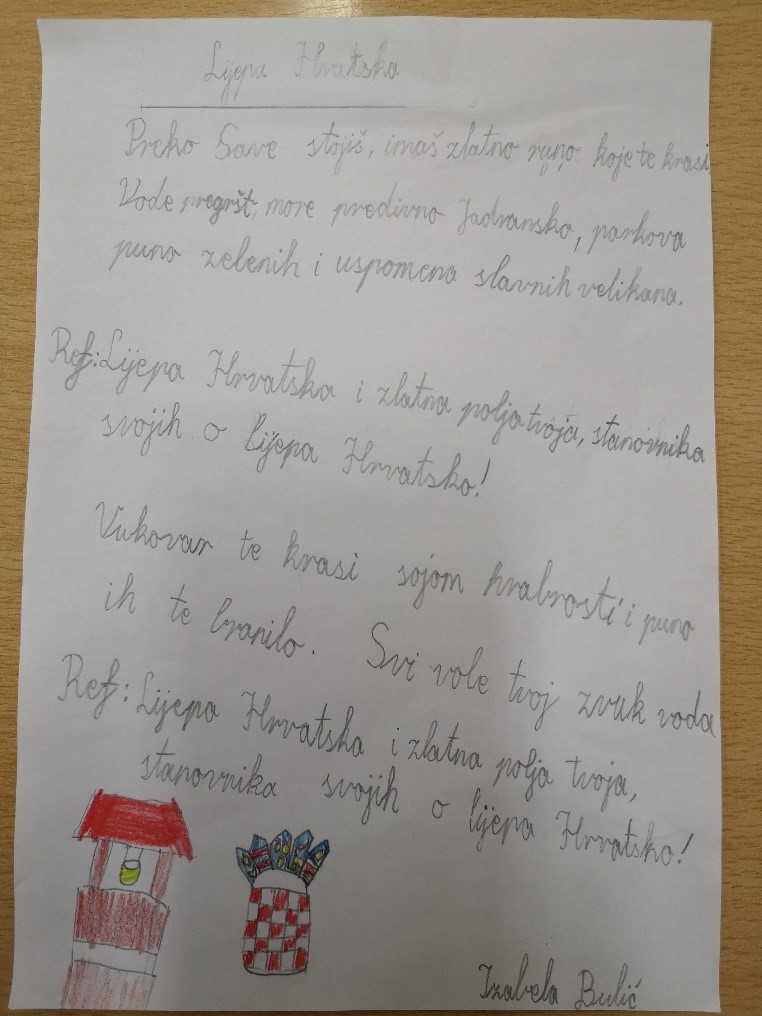 Lijepa Hrvatska
Preko Save stojiš, imaš zlatno runo koje te krasi
Vode pregršt, more predivno Jadransko, parkova
puno zelenih i uspomena slavnih velikana.
Ref: Lijepa Hrvatska i zlatna polja tvoja, stanovnika
svojih o lijepa Hrvatsko!
Vukovar te krasi sojom hrabrosti i puno
ih te branilo. Svi vole tvoj zvuk voda
Ref: Lijepa Hrvatska i zlatna polja tvoja,
stanovnika svojih o lijepa Hrvatsko!
Izabela Bulić